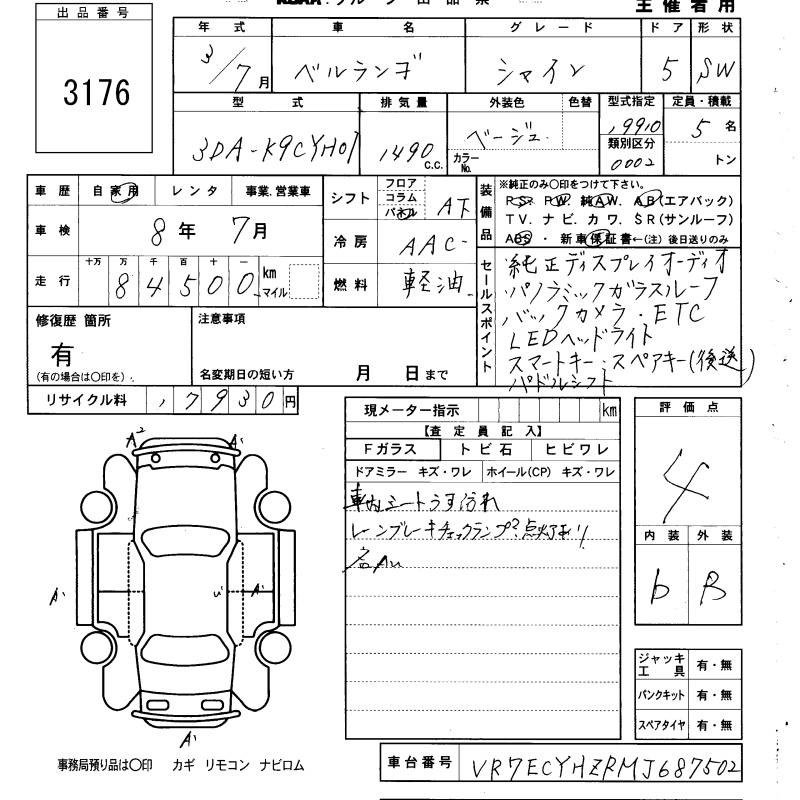 主催者用
出品番号
3176
年式 車名 グレード ドア 形状
3/7月 ベルランゴ シャイン 5 SW
型式 排気量 外装色 色替 型式指定 定員・積載
3DA-K9CYH01 1490 c.c. ベージュ カラーNo. 19910 5名
類別区分
0002 トン
車歴 自家用 レンタ 事業.営業車
シフト フロア コラム パネル AT
装備品 ※純正のみ〇印をつけて下さい。
P.S. P.W. 純A.W. A.B(エアバック)
T.V. ナビ. カワ. S.R(サンルーフ)
ABS ・ 新車保証書←(注) 後日送りのみ
車検 8年 7月
冷房 AAC
走行 十万 万 千 百 十 一
84500 km マイル
燃料 軽油
セールスポイント
純正ディスプレイオーディオ
パノラミックガラスルーフ
バックカメラ・ETC
LEDヘッドライト
スマートキー:スペアキー(後送)
パドルシフト
修復歴 箇所
有
(有の場合は〇印を)
注意事項
名変期日の短い方 月 日まで
リサイクル料 17930円
現メーター指示 km
【査定員記入】
Fガラス トビ石 ヒビワレ
ドアミラー キズ・ワレ ホイール(CP) キズ・ワレ
車内シートうす汚れ
レーンブレーキチェックランプ?点灯あり
評価点
4
内装 外装
b B
A2 A1
A1 A1
A1
ジャッキ工具 有・無
パンクキット 有・無
スペアタイヤ 有・無
事務局預り品は〇印 カギ リモコン ナビロム
車台番号 VR7ECYHZRMJ687502